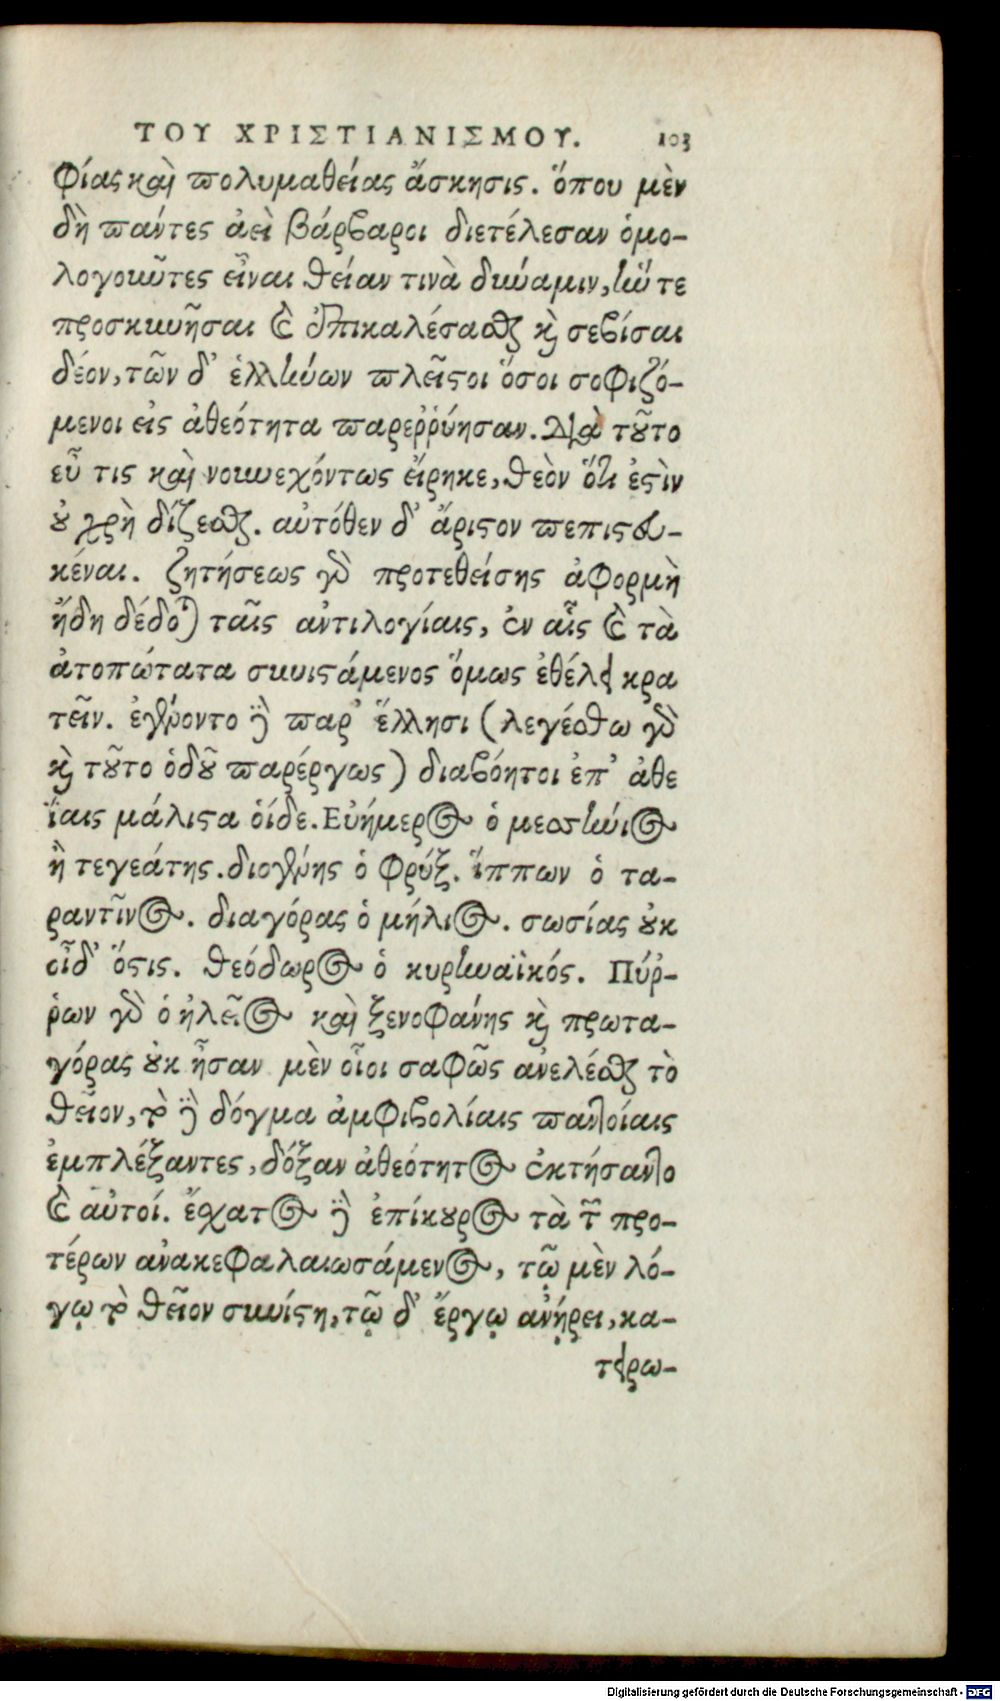 ΤΟΥ ΧΡΙΣΤΙΑΝΙΣΜΟΥ. 103
φίας καὶ πολυμαθείας ἄσκησις. ὅπου μὲν
δὴ πάντες ἀεὶ βάρβαροι διετέλεσαν ὁμο-
λογοῦντες εἶναι θείαν τινὰ δύναμιν, ἥν τε
προσκυνῆσαι καὶ ἐπικαλέσασθαι καὶ σεβίσαι
δέον, τῶν δ' ἑλλήνων πλεῖστοι ὅσοι σοφιζό-
μενοι εἰς ἀθεότητα παρεῤῥύησαν. Διὰ τοῦτο
εὖ τις καὶ νουνεχόντως εἴρηκε, θεὸν ὅτι ἐστὶν
οὐ χρὴ δίζεσθαι. αὐτόθεν δ' ἄριστον πεπιστευ-
κέναι. ζητήσεως γὰρ προτεθείσης ἀφορμὴ
ἤδη δέδοται ταῖς ἀντιλογίαις, ἐν αἷς καὶ τὰ
ἀτοπώτατα συνιστάμενος ὅμως ἐθέλει κρα
τεῖν. ἐγένοντο δὲ παρ' ἕλλησι (λεγέσθω γὰρ
καὶ τοῦτο ὁδοῦ παρέργως) διαβόητοι ἐπ' ἀθε
ΐαις μάλιστα οἵδε. Εὐήμερος ὁ μεσσήνιος
ἢ τεγεάτης. διογένης ὁ φρύξ. ἵππων ὁ τα-
ραντῖνος. διαγόρας ὁ μήλιος. σωσίας οὐκ
οἶδ' ὅστις. θεόδωρος ὁ κυρηναϊκός. Πύρ-
ῥων γὰρ ὁ ἠλεῖος καὶ ξενοφάνης καὶ πρωτα-
γόρας οὐκ ἦσαν μὲν οἷοι σαφῶς ἀνελέσθαι τὸ
θεῖον, τὸ δὲ δόγμα ἀμφιβολίαις παντοίαις
ἐμπλέξαντες, δόξαν ἀθεότητος ἐκτήσαντο
καὶ αὐτοί. ἔσχατος δὲ ἐπίκουρος τὰ τῶν προ-
τέρων ἀνακεφαλαιωσάμενος, τῷ μὲν λό-
γῳ τὸ θεῖον συνίστη, τῷ δ' ἔργῳ ἀνῄρει, κα-
τειρω-
Digitalisierung gefördert durch die Deutsche Forschungsgemeinschaft - DFG